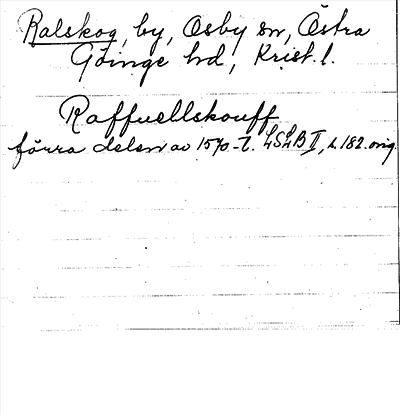 Ralskog, by, Osby sn, Östra
Göinge hd, Krist. l.
Raffuellskouff
förra delen av 1570-t. LSLB II, s. 182. orig.